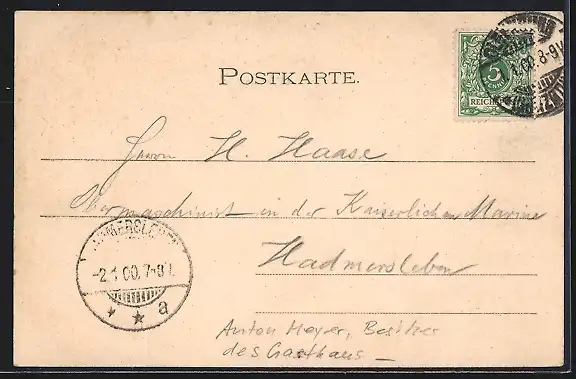 POSTKARTE.
5
PFENNIG
REICHS
00. 8-9V.
Herrn H. Haase
Obermaschinist in der Kaiserlichen Marine
Hadmersleben
HADMERSLEBEN
-2.1.00.7-8V.
* * a
Anton Meyer, Besitzer
des Gasthaus –